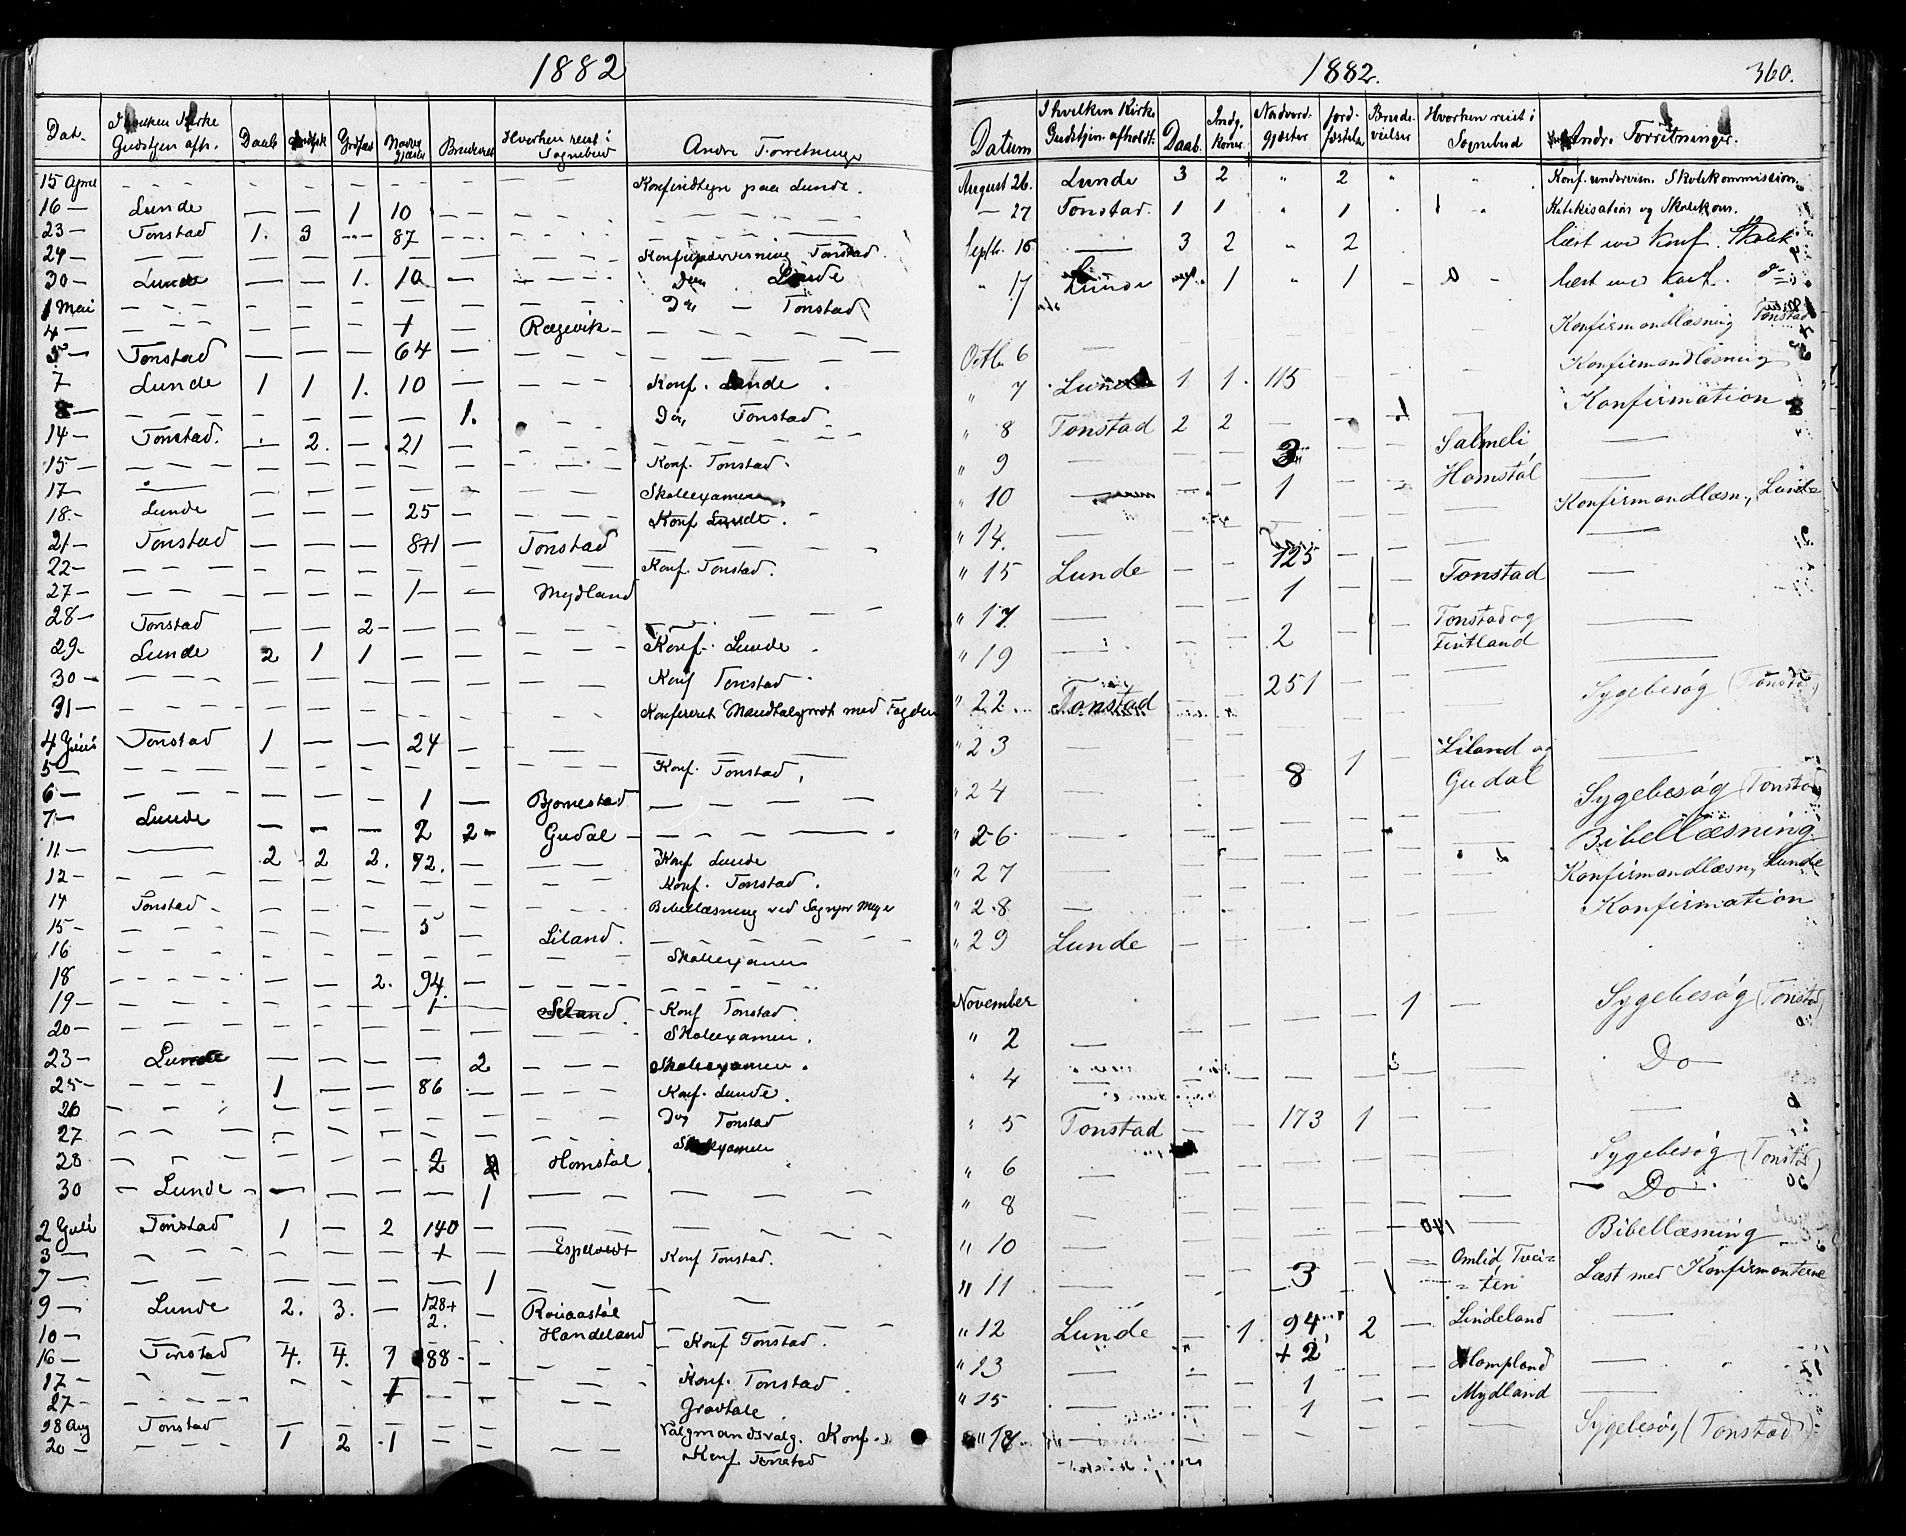 1882
Dat. Kirke Gudstjen afh. Daab Jordfæst Hvorhen reist i Sognebud Andre Forretninger
15 April Konfirndtlæsn paa Lunde.
16 — Lunde — — 1 10
23 — Tonstad 1. 3 — 87
24 — Konfirundervisning Tonstad.
30 — Lunde — — 1. 10 — Do Lunde
1 Mai Do — Tonstad
4 — 1 — Ræsevik —
5 — Tonstad — — — 64 —
7 Lunde 1 1 1. 10 — Konf. Lunde.
8 — 1. Do Tonstad
14 — Tonstad. — 2. — 21 —
15 — Konf. Tonstad.
17 — Skoleexamen
18 — Lunde — — — 25 — Konf Lunde.
21 — Tonstad — — — 871 — Tonstad
22 — Konf. Tonstad.
27 — 1 — Mydland
28 — Tonstad — — 2 —
29 — Lunde 2 1 1 — Konf. Lunde
30 — Konf Tonstad
31 — Konfereret Mandtalsprot med Fogden
4 Juni Tonstad 1 — — 24 —
5 — Konf. Tonstad,
6 — 1 — Bjornestad
7 — Lunde — — — 2 2 — Gudal —
11 — 2 2 2. 92. — Konf Lunde
12 — Konf. Tonstad.
14 Tonstad Bibellæsning ved Sognepr Meyer
15 — 5 Liland.
16 Skoleexamen
18 — 2. 94. —
19 — 1 Seland. Konf Tonstad.
20 — Skoleexamen.
23 — Lunde — — — — 2 Skoleexamen.
25 — 1 — — 86 Konf. Lunde.
26 Do Tonstad
27 Skoleexamen
28 2 2 Homstøl
30 — Lunde — — — — 1
2 Juli Tonstad 1 — 2 140 —
3 — + Espetvedt Konf Tonstad.
7 — 1
9 — Lunde 2. 3. — 128+2. Rouaastøl Handeland
10 — Konf Tonstad.
16 — Tonstad 4. 4. 7 88 —
17 — Konf. Tonstad
27 — 1 Gravtale
28 Aug Tonstad Valgmandsvalg. Konf.
20 — 1 2 1 Konf. Tonstad
1882. 360.
Datum I hvilken Kirke Gudstjen. afholdt. Daab. Indg. koner. Nadverdgjæster Jordfæstelse Brudevielser Hvorhen reist i Sognebud Andre Forretninger.
August 26. Lunde 3 2 " 2 " " Konf. undervisn. Skolekommission
— 27 Tonstad. 1 1 " 1 Katekisation og Skolekom.
Septb. 16 — 3 2 " 2 læst med Konf.
" 17 Lunde 1 " 1 læst med Konf.
Konfirmandlæsning Tonstad
Octb. 6 — Konfirmandlæsning
" 7 Lunde 1 1. 115 Konfirmation
" 8 Tonstad 2 2 —
" 9 — 3 Salmeli —
" 10 — 1 Homstøl —
" 14. Konfirmandlæsn., Lunde
" 15 Lunde — — 125 — —
" 17 — 1 Tonstad —
" 19 — 2 Tonstad og Fintland —
" 22 Tonstad — — 251 —
" 23 — Sygebesøg (Tonstad)
" 24 — 8 1 — Liland og Gudal —
" 26 — Sygebesøg (Tonstad
" 27 — Bibellæsning
" 28 — Konfirmandlæsn., Lunde
" 29 Lunde Konfirmation
November
" 2 — 1 — Sygebesøg (Tonstad)
" 4 — Do —
" 5 Tonstad — — 173 1 —
" 6 — Sygebesøg (Tonstad)
" 8 — Do —
" 10 — Bibellæsning
" 11 — 3 Omlid Tveiten Læst med Konfirmanterne
" 12 Lunde — 1. 94 + 2 2 — Lindeland —
" 13 — 1 Hompland —
" 15 — 1 Mydland —
" 18 — Sygebesøg (Tonstad)